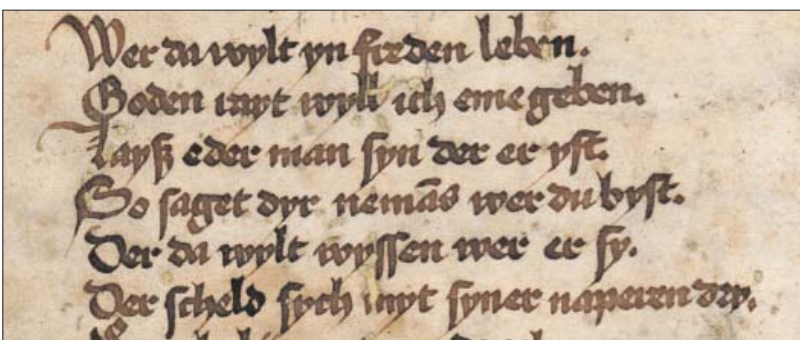 Wer da wylt yn freden leben.
Goden rayt wyll ich eme geben.
Layß eder man syn der er yst.
So saget dyr nemās wer du byst.
Der da wylt wyssen wer er sy.
Der scheld sych myt syner naperen dry.